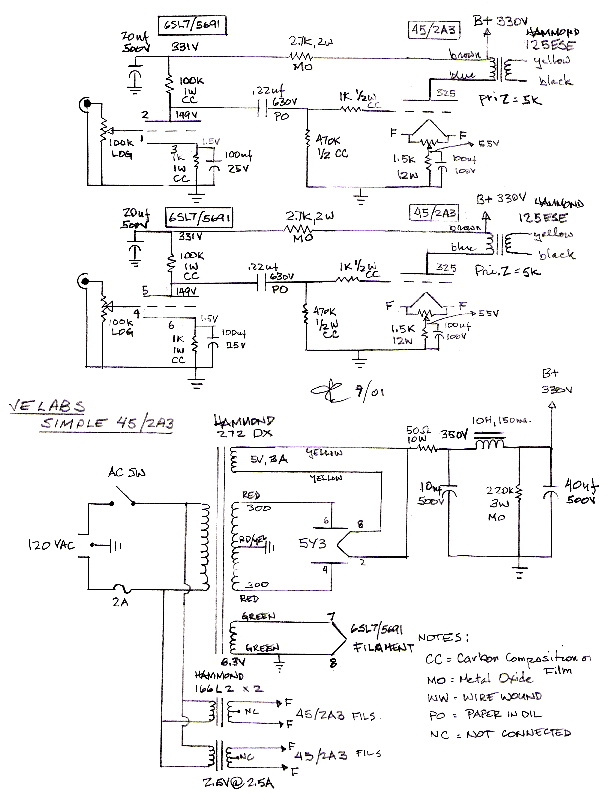 6SL7/5691
45/2A3
B+ 330V
HAMMOND
125ESE
20uf
500V
331V
2.7K, 2W
MO
brown
yellow
blue
black
Pri Z = 5K
100K
1W
CC
.22uf
630V
PO
1K 1/2W
CC
325
2
149V
1
3
100K
LOG
1K
1W
CC
1.5V
100uf
25V
470K
1/2 CC
F F
55V
1.5K
12W
100uf
100V
20uf
500V
6SL7/5691
331V
2.7K, 2W
MO
45/2A3
B+ 330V
HAMMOND
125ESE
brown
yellow
blue
black
Pri. Z = 5K
100K
1W
CC
.22uf
630V
PO
1K 1/2W
CC
325
5
149V
4
6
100K
LOG
1K
1W
CC
1.5V
100uf
25V
470K
1/2W
CC
F F
55V
1.5K
12W
100uf
100V
9/01
VE LABS
SIMPLE 45/2A3
HAMMOND
272 DX
B+
330V
50Ω
10W
350V
10H, 150ma
5V, 3A
YELLOW
YELLOW
10uf
500V
220K
3W
MO
40uf
500V
AC SW
120 VAC
2A
RED
300
300
RED
6
8
5Y3
4
2
GREEN
GREEN
6.3V
7
8
6SL7/5691
FILAMENT
HAMMOND
166L2 x 2
NC
F
F
45/2A3 FILS.
NC
F
F
45/2A3 FILS
2.5V @ 2.5A
NOTES:
CC = Carbon Composition or
Film
MO = Metal Oxide
WW - WIRE WOUND
PO = PAPER IN OIL
NC = NOT CONNECTED